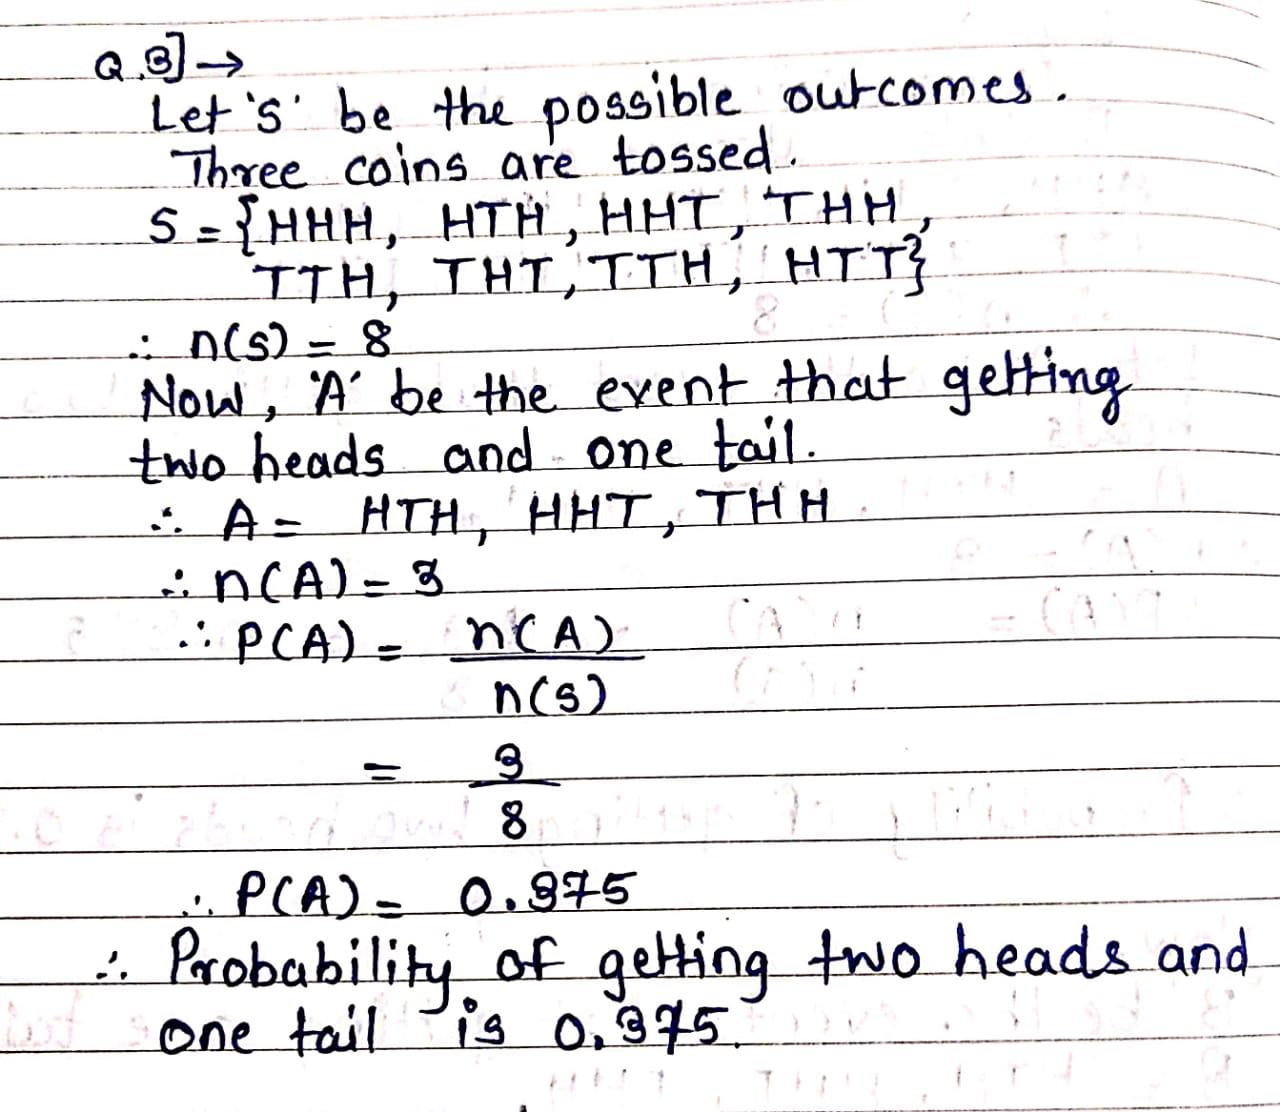 Q.3] →
Let 'S' be the possible outcomes.
Three coins are tossed.
S = {HHH, HTH, HHT, THH,
TTH, THT, TTH, HTT}
∴ n(s) = 8
Now, 'A' be the event that getting
two heads and one tail.
∴ A = HTH, HHT, THH
∴ n(A) = 3
∴ P(A) = n(A)
n(s)
= 3
8
∴ P(A) = 0.375
∴ Probability of getting two heads and
one tail is 0.375.